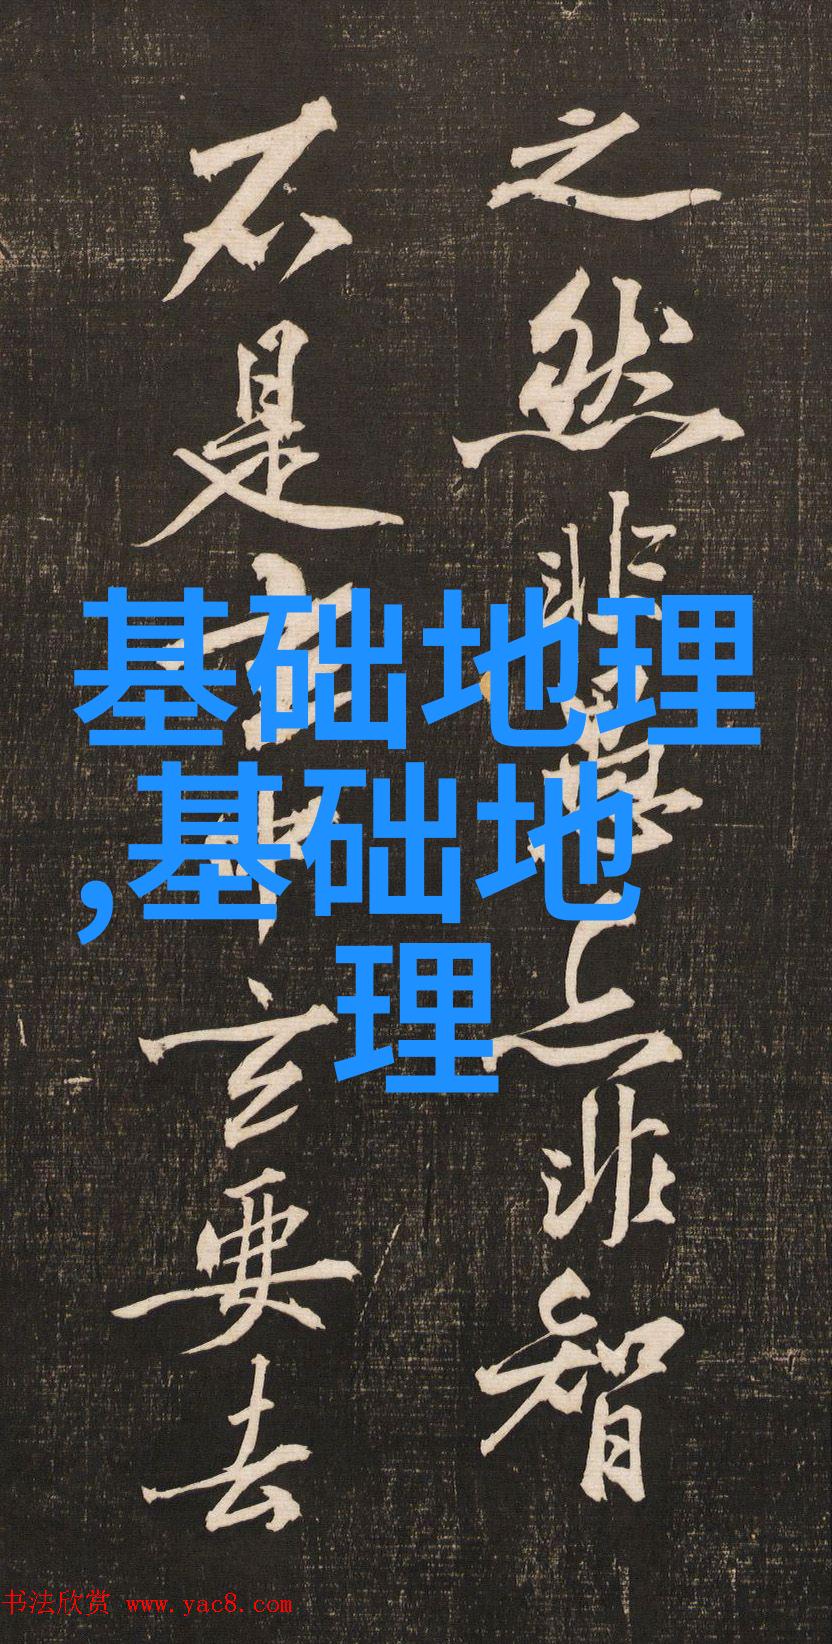 之然非上非智
不是玄要去
基础地理
,基础地
理
书法欣赏 www.yac8.com